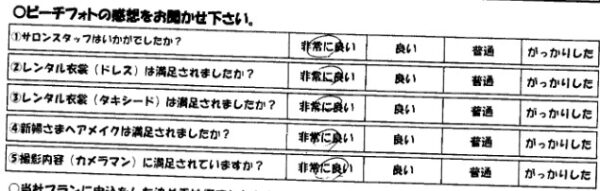 ○ビーチフォトの感想をお聞かせ下さい。
①サロンスタッフはいかがでしたか? 非常に良い 良い 普通 がっかりした
②レンタル衣裳（ドレス）は満足されましたか? 非常に良い 良い 普通 がっかりした
③レンタル衣裳（タキシード）は満足されましたか? 非常に良い 良い 普通 がっかりした
④新婦さまヘアメイクは満足されましたか? 非常に良い 良い 普通 がっかりした
⑤撮影内容（カメラマン）に満足されていますか? 非常に良い 良い 普通 がっかりした
○当社プランに申込